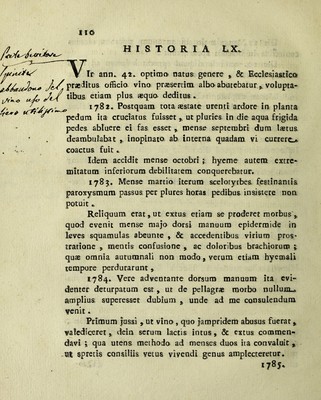 110
HISTORIA LX.
VIr ann. 42. optimo natus genere, & Ecclesiastico
præditus officio vino præsertim albo abutebatur, volupta-
tibus etiam plus æquo deditus.
1782. Postquam tota æstate urenti ardore in planta
pedum ita cruciatus fuisset, ut pluries in die aqua frigida
pedes abluere ei fas esset, mense septembri dum lætus
deambulabat, inopinato ab interna quadam vi currere
coactus fuit.
Idem accidit mense octobri; hyeme autem extre-
mitatum inferiorum debilitatem conquerebatur.
1783. Mense martio iterum scelotyrbes festinantis
paroxysmum passus per plures horas pedibus insistere non
potuit.
Reliquum erat, ut extus etiam se proderet morbus,
quod evenit mense majo dorsi manuum epidermide in
leves squamulas abeunte, & accedentibus virium pros-
tratione, mentis confusione, ac doloribus brachiorum;
quæ omnia autumnali non modo, verum etiam hyemali
tempore perdurarunt,
1784. Vere adventante dorsum manuum ita evi-
denter deturpatum est, ut de pellagræ morbo nullum
amplius superesset dubium, unde ad me consulendum
venit.
Primum jussi, ut vino, quo jampridem abusus fuerat,
valediceret, dein serum lactis intus, & extus commen-
davi; qua utens methodo ad menses duos ita convaluit,
ut spretis consiliis vetus vivendi genus amplecteretur.
1785.
vino